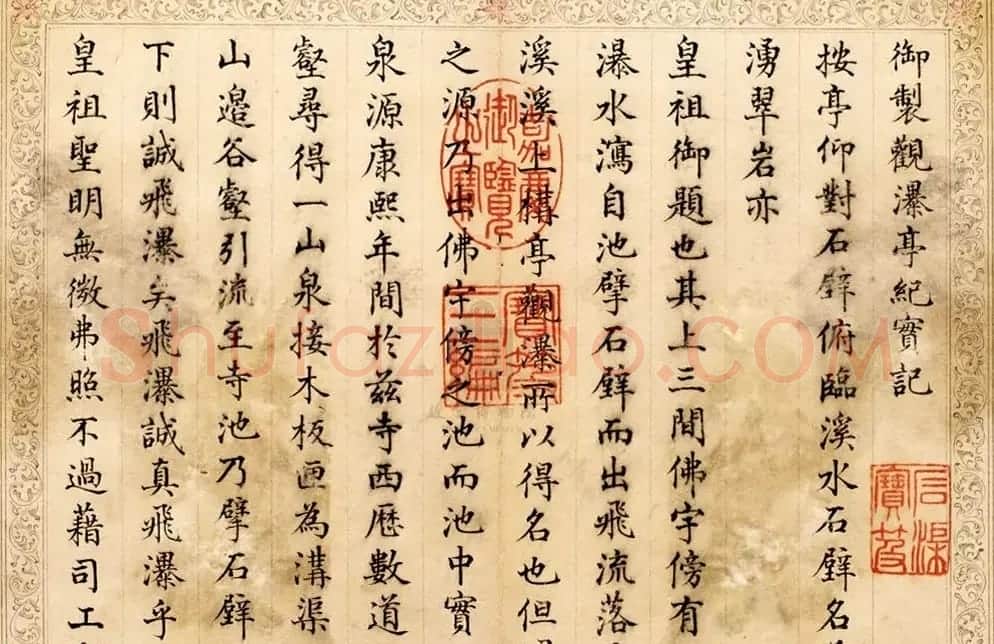 御製觀瀑亭紀實記
按亭仰對石壁俯臨溪水石壁名
湧翠岩亦
皇祖御題也其上三間佛宇傍有
瀑水瀉自池擘石壁而出飛流落
溪溪上構亭觀瀑所以得名也但
之源乃出佛宇傍之池而池中實
泉源康熙年間於茲寺西歷數道
壑尋得一山泉接木板匣為溝渠
山邉谷壑引流至寺池乃擘石壁
下則誠飛瀑矣飛瀑誠真飛瀑乎
皇祖聖明無微弗照不過藉司工
Shufaziliao.com